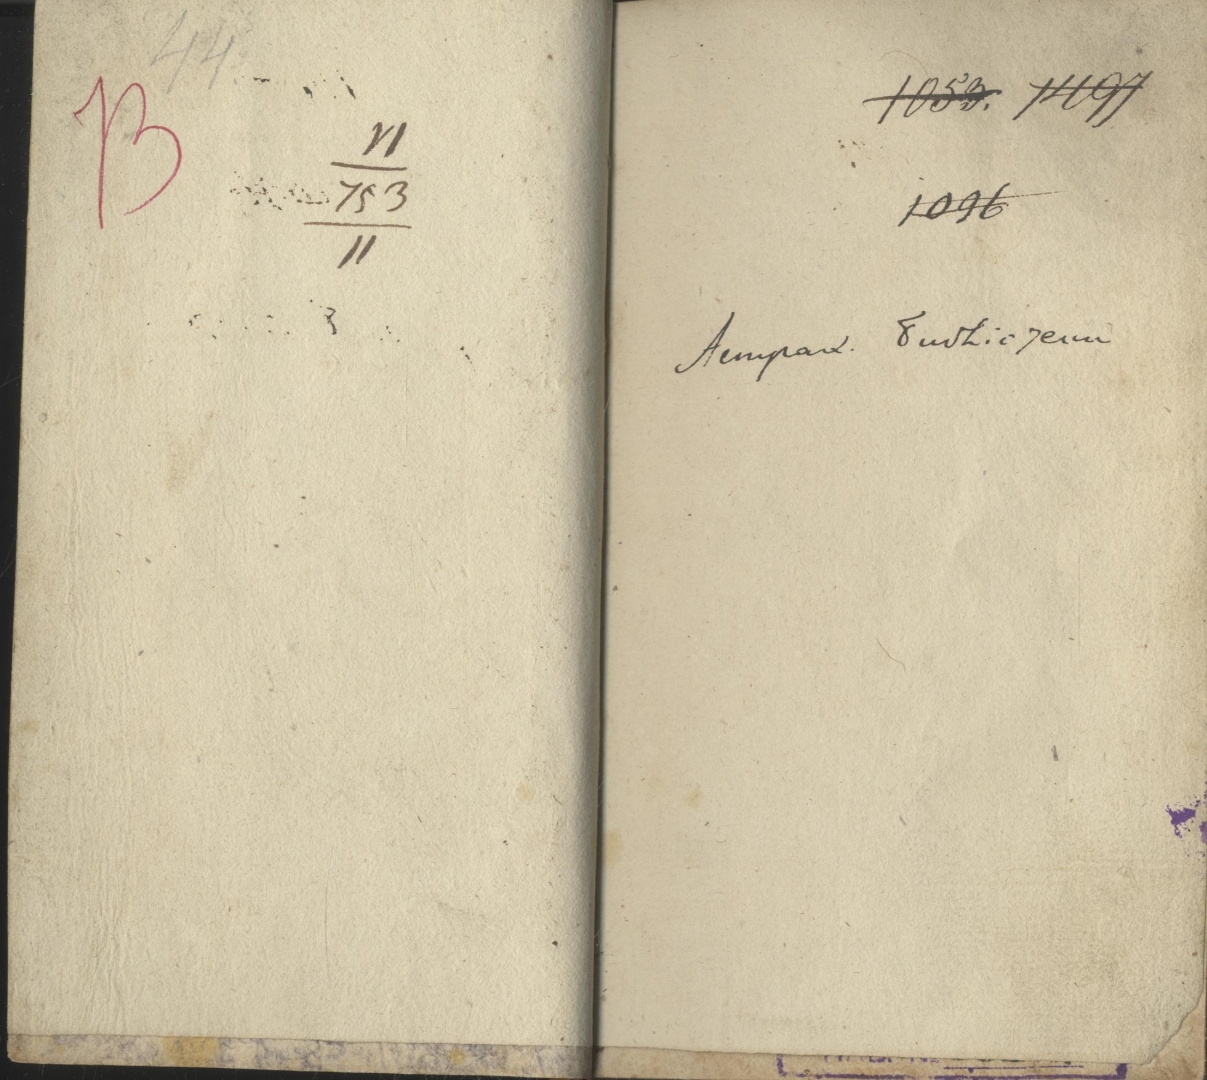 44
B
VI
753
II
1053. 1497
1096
Астрах. Библіотеки